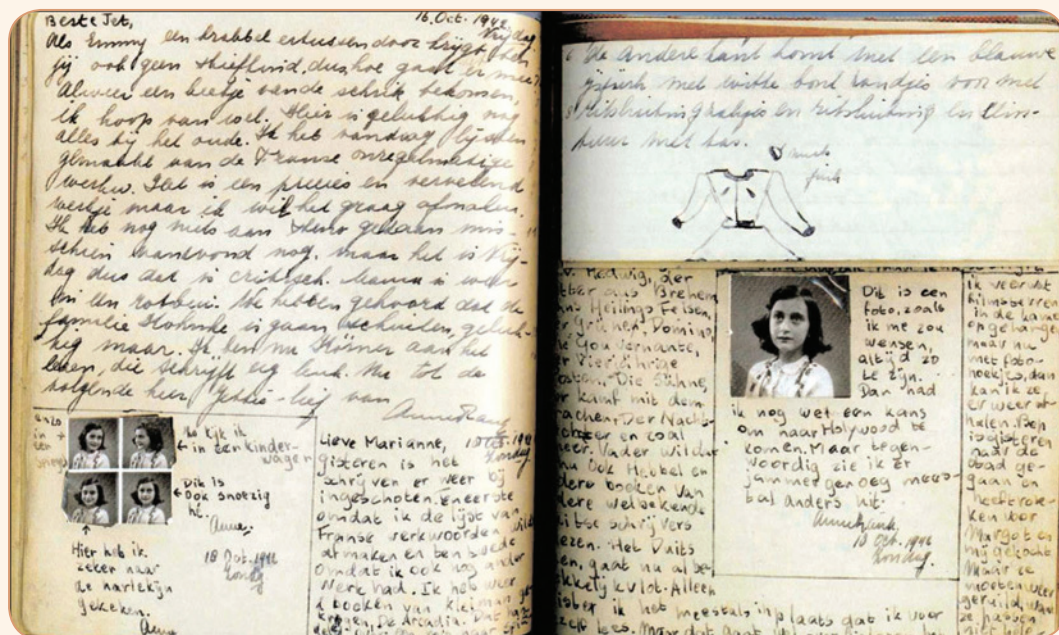 Beste Jet,
16. Oct. 1942
Vrijdag.
Als Emmy een krabbel ertussendoor krijgt, ben
jij ook geen stiefkind, dus hoe gaat er mee?
Alweer een beetje van de schrik bekomen,
ik hoop van wel. Hier is gelukkig nog
alles bij het oude. Ik heb vandaag lijsten
gemaakt van de Franse onregelmatige
werkw. Het is een precies en vervelend
werkje maar ik wil het graag afmaken.
Ik heb nog niets aan steno gedaan mis-
schien vanavond nog, maar het is Vrij-
dag dus dat is critisch. Mama is weer
We hebben gehoord dat de
familie is gaan schuilen, geluk-
kig maar. Ik ben nu Körner aan het
lezen, die schrijft erg leuk. Nu tot de
volgende keer Jettie-lief van
Anne Frank
enzo
in +
een
Zo kijk ik
in een kinder-
wagen
Dit is
ook snoezig
hè.
Anne.
18 Oct. 1942
Zondag
Hier heb ik
zeker naar
de harlekijn
gekeken.
Anne
Lieve Marianne,
18 Oct. 1942
Zondag
gisteren is het
schrijven er weer bij
ingeschoten. Eneerste
omdat ik de lijst van
Franse werkwoorden wilde
afmaken en ten tweede
omdat ik ook nog ander
werk had. Ik heb weer
2 boeken van Kleiman ge-
kregen, De Arcadia, Dat
de andere kant komt met een blauwe
met witte bont randjes voor met
en ritssluiting en
met tas.
Hedwig, der
aus Bremen
Hans Heilings Felsen,
Der Grünen Domino,
Die Gouvernante,
Der Vierjährige
Posten, Die Sühne,
Der Kampf mit dem
Drachen, Der Nacht-
wächter en zoal
meer. Vader wil dat
nu ook Hebbel en
andere boeken van
andere welbekende
Duitse schrijvers
lezen. Het Duits
lezen, gaat nu al be-
trekkelijk vlot. Alleen
ik het meestals in plaats dat ik voor
mezelf lees. Maar dat gaat
Dit is een
foto, zoals
ik me zou
wensen,
altijd zo
te zijn.
Dan had
ik nog wel een kans
om naar Holywood te
komen. Maar tegen-
woordig zie ik er
jammer genoeg mees-
tal anders uit.
Annefrank.
18 Oct. 1942
Zondag.
ik veer wat
filmsterren
in de kamer
opgehangen
maar nu
met foto-
hoekjes, dan
kan ik ze
er weer af-
halen. Bep
is gisteren
naar de
stad ge-
gaan en
heeft rok-
ken voor
Margot en
mij gekocht
Maar ze
moeten weer
geruild, want
ze hebben